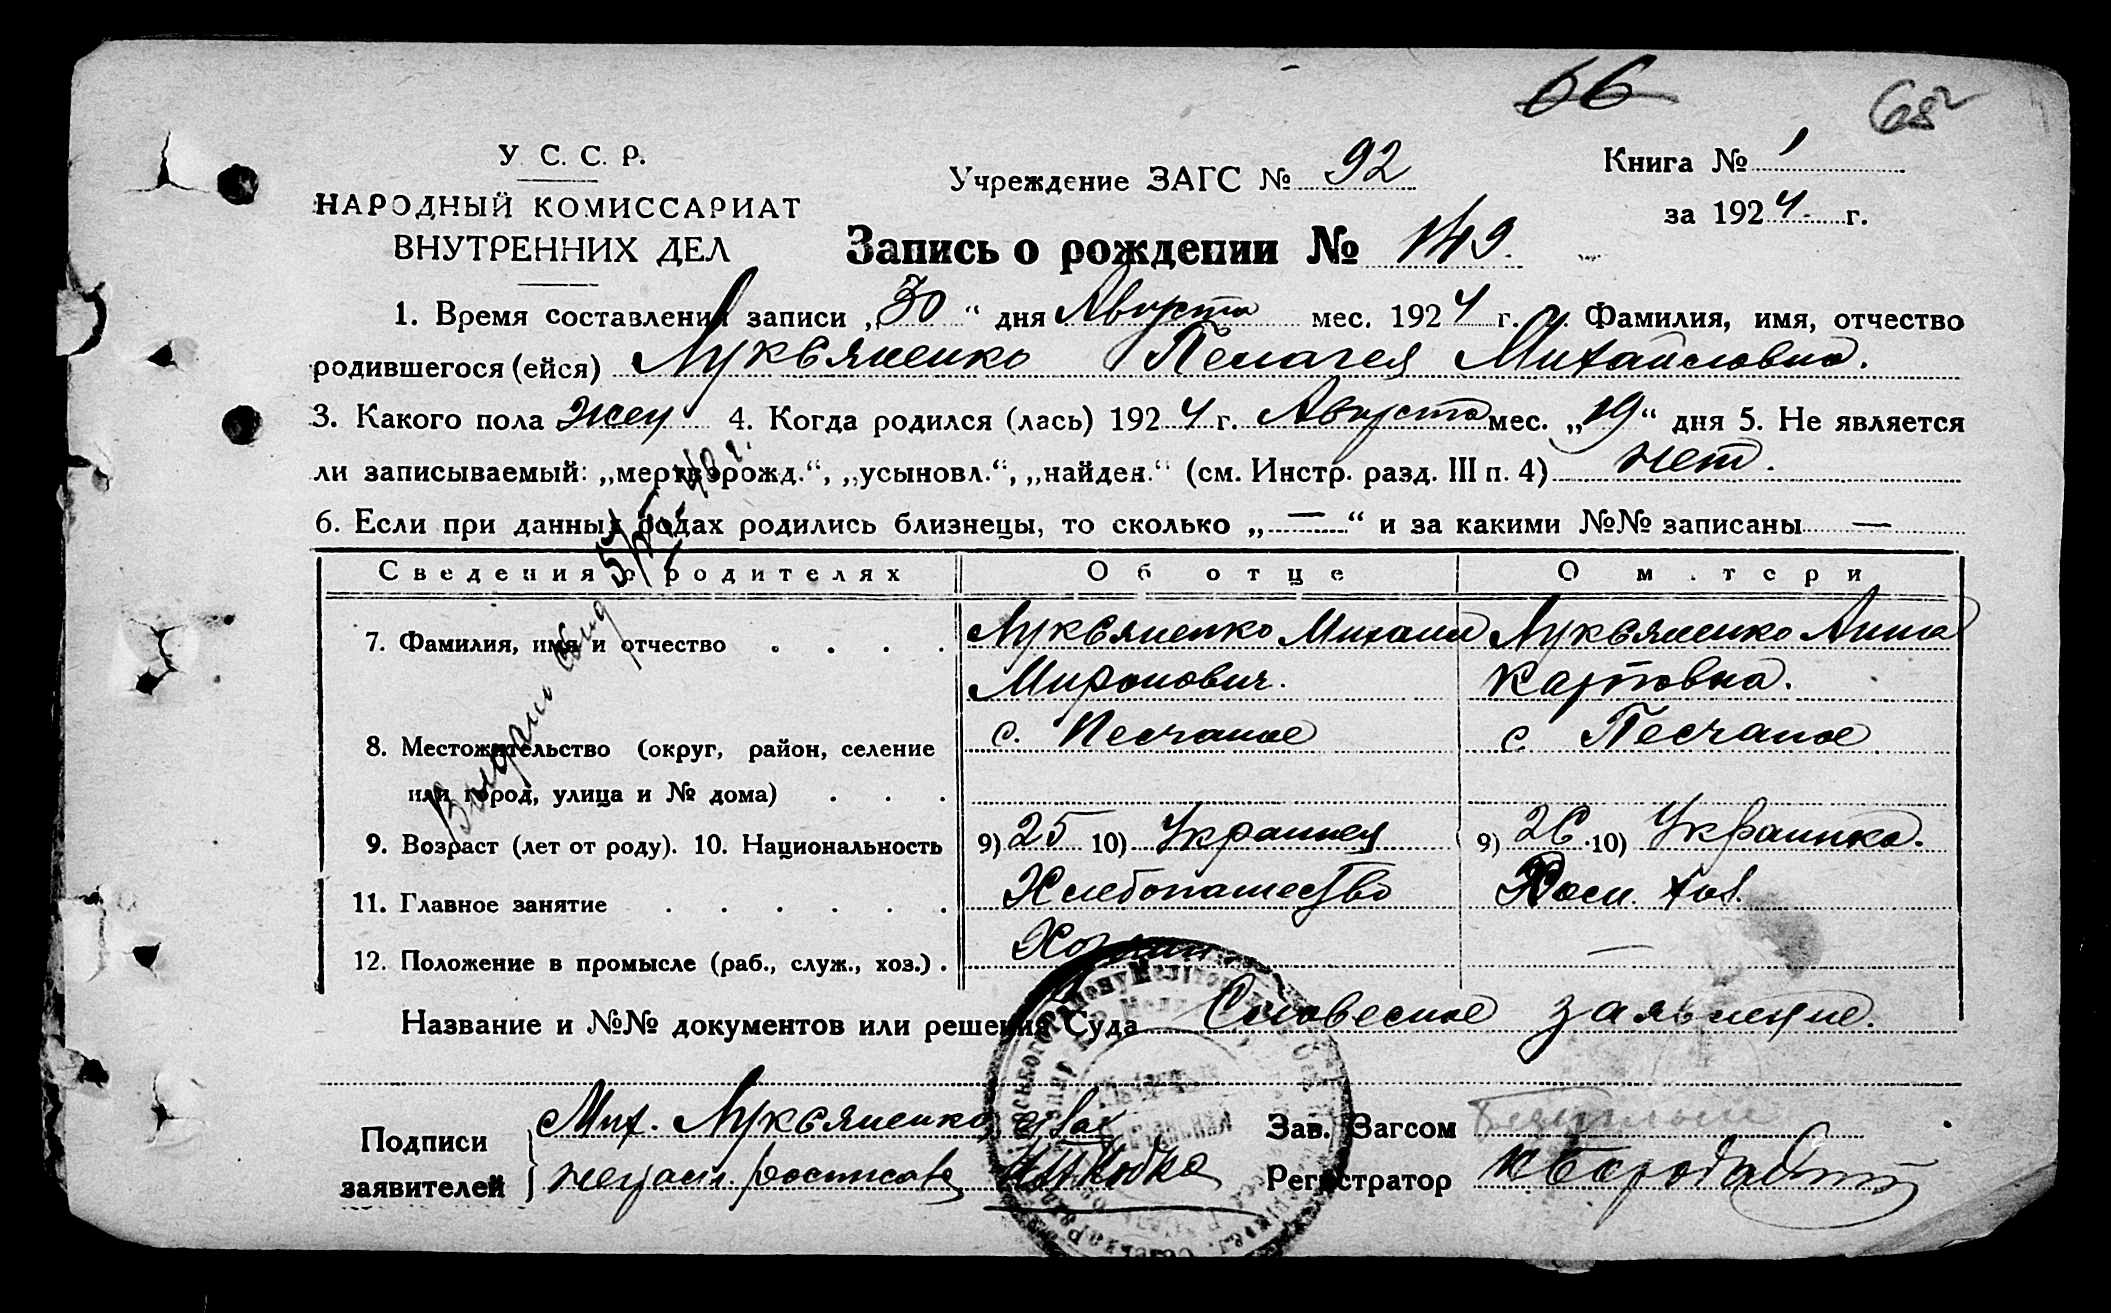 66
68
У. С. С. Р.
НАРОДНЫЙ КОМИССАРИАТ
ВНУТРЕННИХ ДЕЛ
Учреждение ЗАГС № 92
Книга № 1
за 1924 г.
Запись о рождении № 149.
1. Время составления записи „30“ дня Августа мес. 1924 г. Фамилия, имя, отчество
родившегося (ейся) Лукьяненко Пелагея Михайловна.
3. Какого пола жен 4. Когда родился (лась) 1924 г. Августа мес. „19“ дня 5. Не является
ли записываемый: „мертворожд.“, „усыновл.“, „найден.“ (см. Инстр. разд. III п. 4) нет.
6. Если при данных родах родились близнецы, то сколько „—“ и за какими №№ записаны —
Сведения о родителях Об отце О матери
7. Фамилия, имя и отчество . . . . Лукьяненко Михаил Лукьяненко Анна
Миронович. Карповна.
8. Местожительство (округ, район, селение с. Песчаное с. Песчаное
или город, улица и № дома) . . .
9. Возраст (лет от роду). 10. Национальность 9) 25 10) Украинец 9) 26 10) Украинка.
11. Главное занятие . . . . . . Хлебопашество
12. Положение в промысле (раб., служ., хоз.) . Хозяин —
Название и №№ документов или решения Суда Словесное заявление.
Подписи
заявителей
Мих. Лукьяненко
росписать
Зав. Загсом
Регистратор